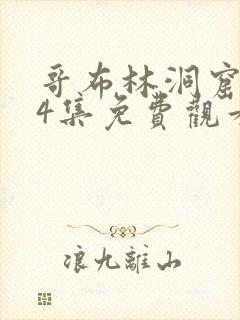 哥布林洞窟
4集免費觀看
浪九離山